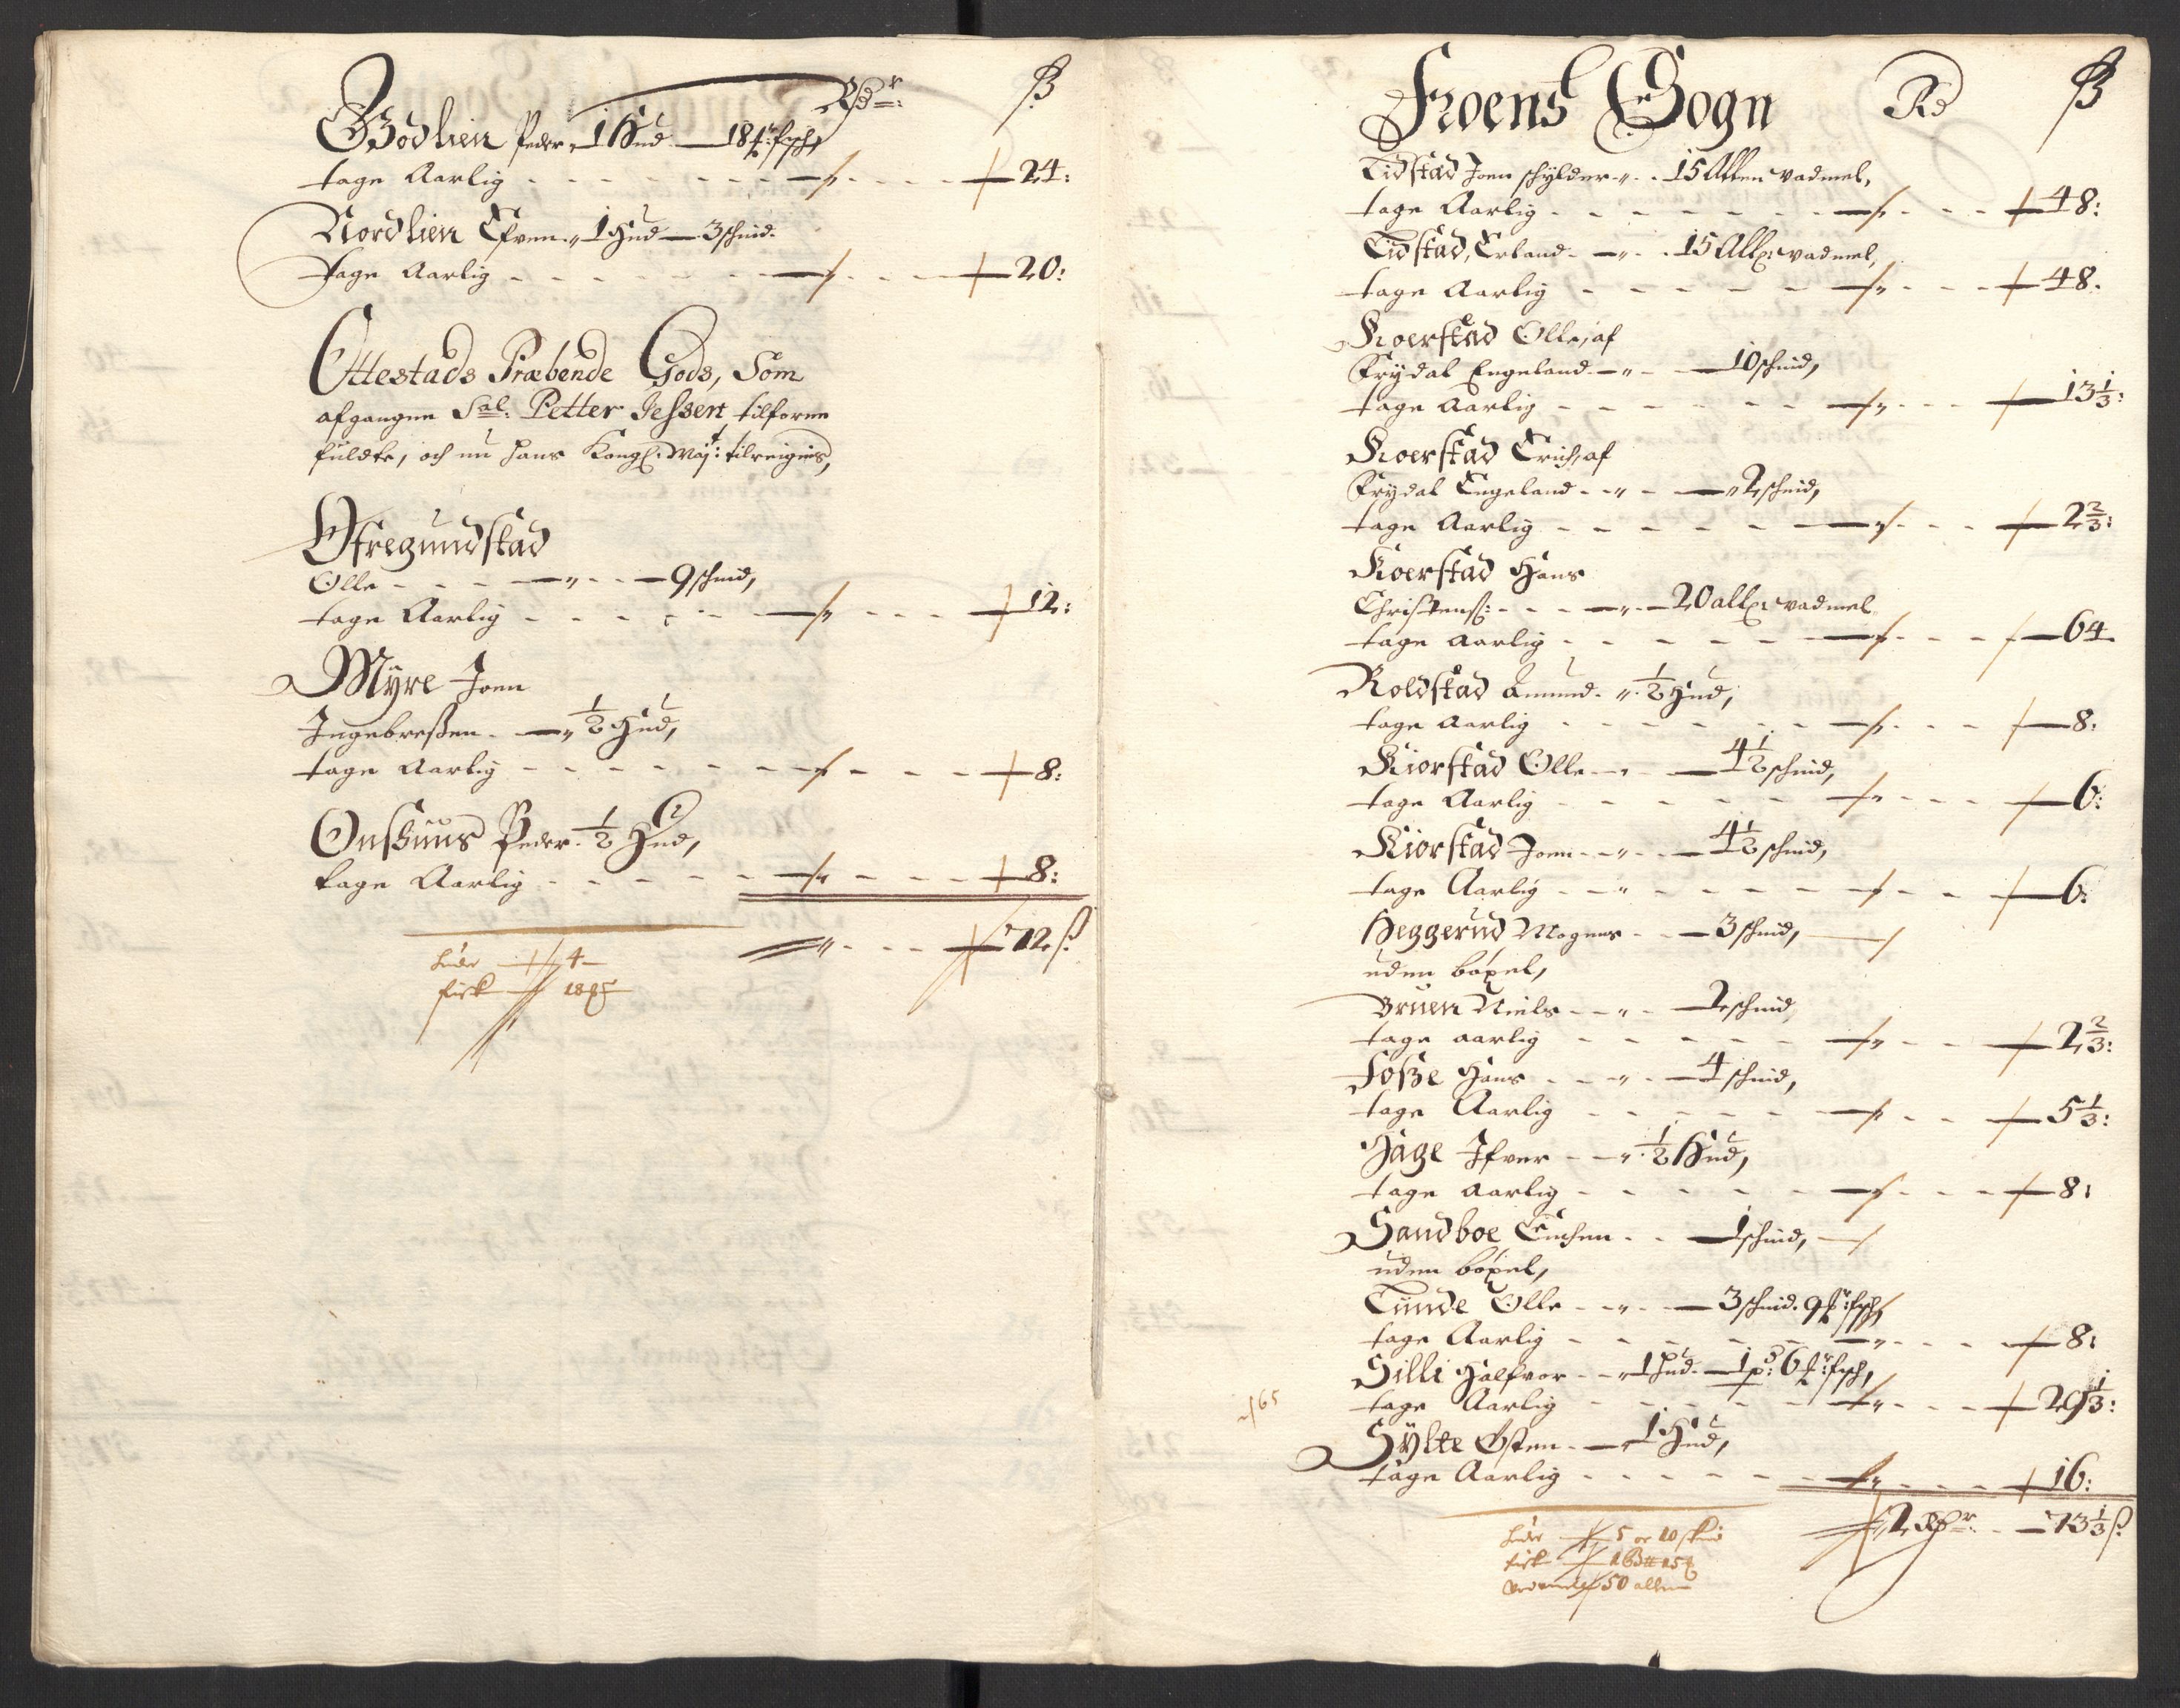 Rdr: ß
Bødlien Peder 1 Hud 18 f: fisch,
tage Aarlig 24:
Nordlien Efven 1 Hud 3 schind.
tage Aarlig 20:
Ottestads Præbende Gods, Som
afgangne Sal: Petter Jessen tilforne
fuldte, och nu Hans Kongl: May:t tilreignis,
Ofregundstad
Olle 9 schind,
tage Aarlig 12:
Myre Joen
Ingebreßen 1/2 Hud,
tage Aarlig 8:
Onsßuus Peder 1/2 Hud,
tage Aarlig 8:
72 ß.
Huder 4
fisk 18
Froens Sogn Rd ß
Tidstad Joen schylder 15 Allen vadmel,
tage Aarlig 48:
Tidstad, Erland 15 All: vadmel,
tage Aarlig 48.
Koerstad Olle, af
Frydal Engeland 10 schind,
tage Aarlig 13 1/3:
Koerstad Erich, af
Frydal Engeland 2 schind,
tage Aarlig 2 2/3:
Koerstad Hans
Christens: 20 all: vadmel
tage Aarlig 64.
Roldstad Amund 1/2 Hud,
tage Aarlig 8:
Kiorstad Olle 4 1/2 schind,
tage Aarlig 6:
Kiorstad Joen 4 1/2 schind,
tage Aarlig 6:
Heggerud Mogens 3 schind,
uden bøxel,
Bruen Niels 2 schind,
tage aarlig 2 2/3:
Foße Hans 4 schind,
tage Aarlig 5 1/3:
Hage Ifver 1/2 Hud,
tage Aarlig 8:
Sandboe 1 schind,
uden bøxel,
Tunde Olle 3 schind. 9 f: fisch,
tage Aarlig 8:
Silli Halfvor 1 Hud 1 p: 6 f: fisch,
tage Aarlig 29 1/3:
Sylte Østen 1 Hud,
tage Aarlig 16:
2 Rdr: 73 1/3 ß.
Huder 5 or 10 skind
fisk 1 15
vadmel 50 allen